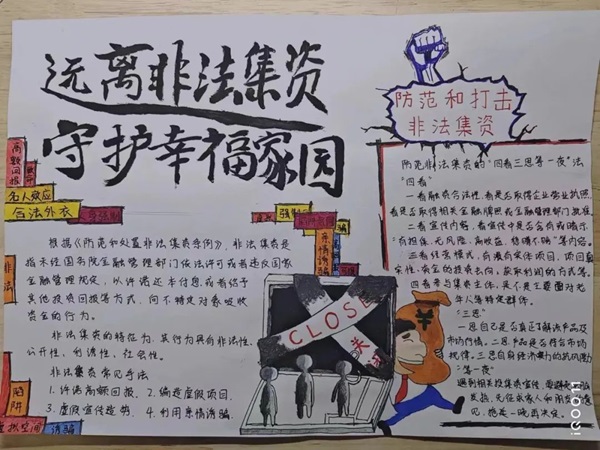 远离非法集资
守护幸福家园
防范和打击
非法集资
高额回报
名人效应
合法外衣
亲情诱骗
根据《防范和处置非法集资条例》，非法集资是
指未经国务院金融管理部门依法许可或者违反国家
金融管理规定，以许诺还本付息或者给予
其他投资回报等方式，向不特定对象吸收
资金的行为。
非法集资的特征为，其行为具有非法性、
公开性，利诱性，社会性。
非法集资常见手法
1.许诺高额回报. 2.编造虚假项目.
3.虚假宣传造势. 4.利用亲情诱骗.
CLOSE
关
陷阱
诱骗
虚拟空间
防范非法集资的“四看三思等一夜”法
“四看”
一看融资合法性，就是否取得企业营业执照，
就是否取得相关金融牌照或金融管理部门批准。
二看宣传内容，看宣传中是否含有或暗示
“有担保、无风险、高收益、稳赚不赔”等内容。
三看经营模式，有没有实体项目，项目真
实性、资金的投资去向、获取利润的方式等。
四看参与集资主体，是不是主要面对老
年人等特定群体。
“三思”
一思自己是否真正了解该产品及
市场行情。二思产品是否符合市场
规律。三思自身经济实力的抗风险力
“等一夜”
遇到相关投资集资宣传，
¥
iQOO